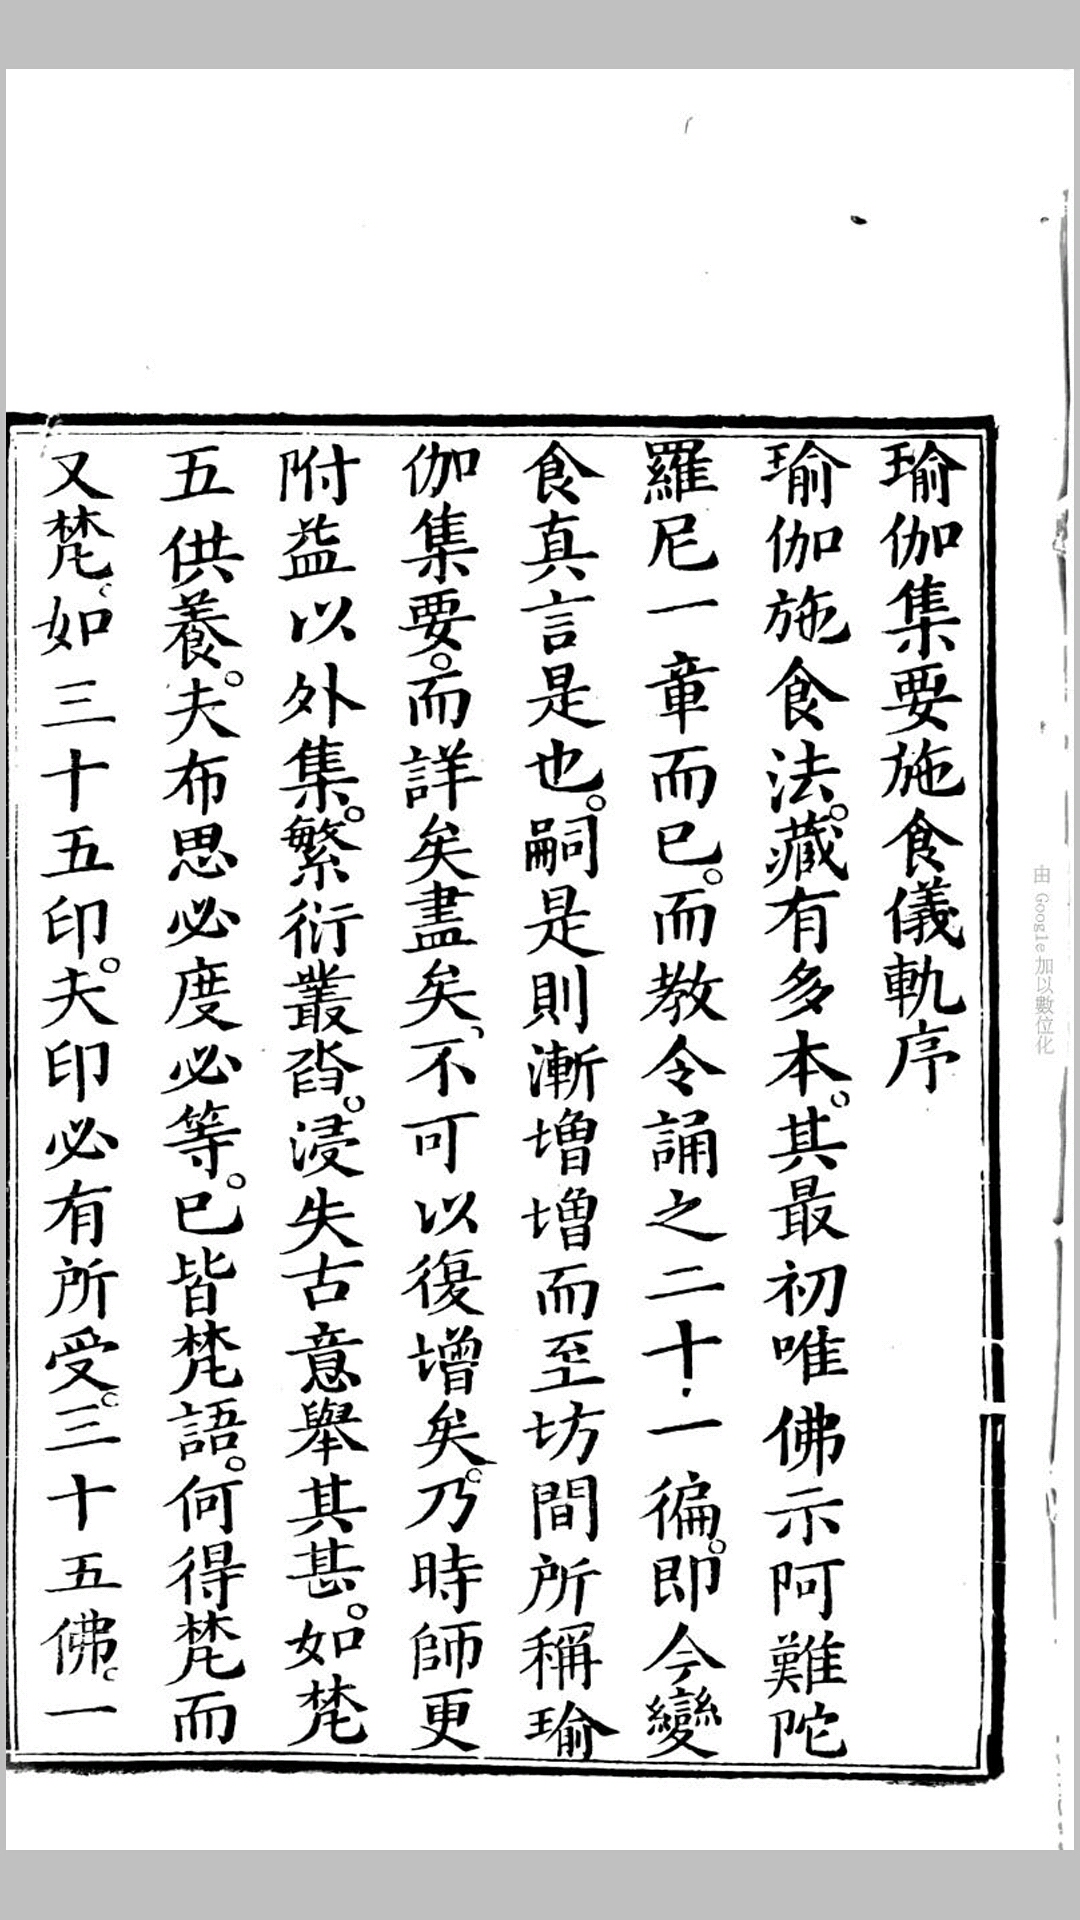 瑜伽集要施食儀軌序
瑜伽施食法。藏有多本。其最初唯佛示阿難陀
羅尼一章而已。而教令誦之二十一徧。即今變
食真言是也。嗣是則漸增增而至坊間所稱瑜
伽集要。而詳矣盡矣、不可以復增矣。乃時師更
附益以外集。繁衍叢沓。浸失古意舉其甚。如梵
五供養。夫布思必度必等。已皆梵語。何得梵而
又梵、如三十五印。夫印必有所受。三十五佛。一
由 Google 加以數位化